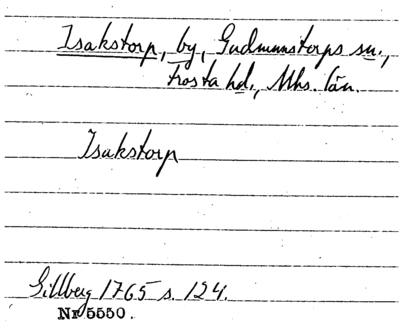 Isakstorp, by, Gudmunstorps sn.,
Frosta hd., Mhs. län.
Isakstorp
Gillberg 1765 s. 124.
Nr 5550.